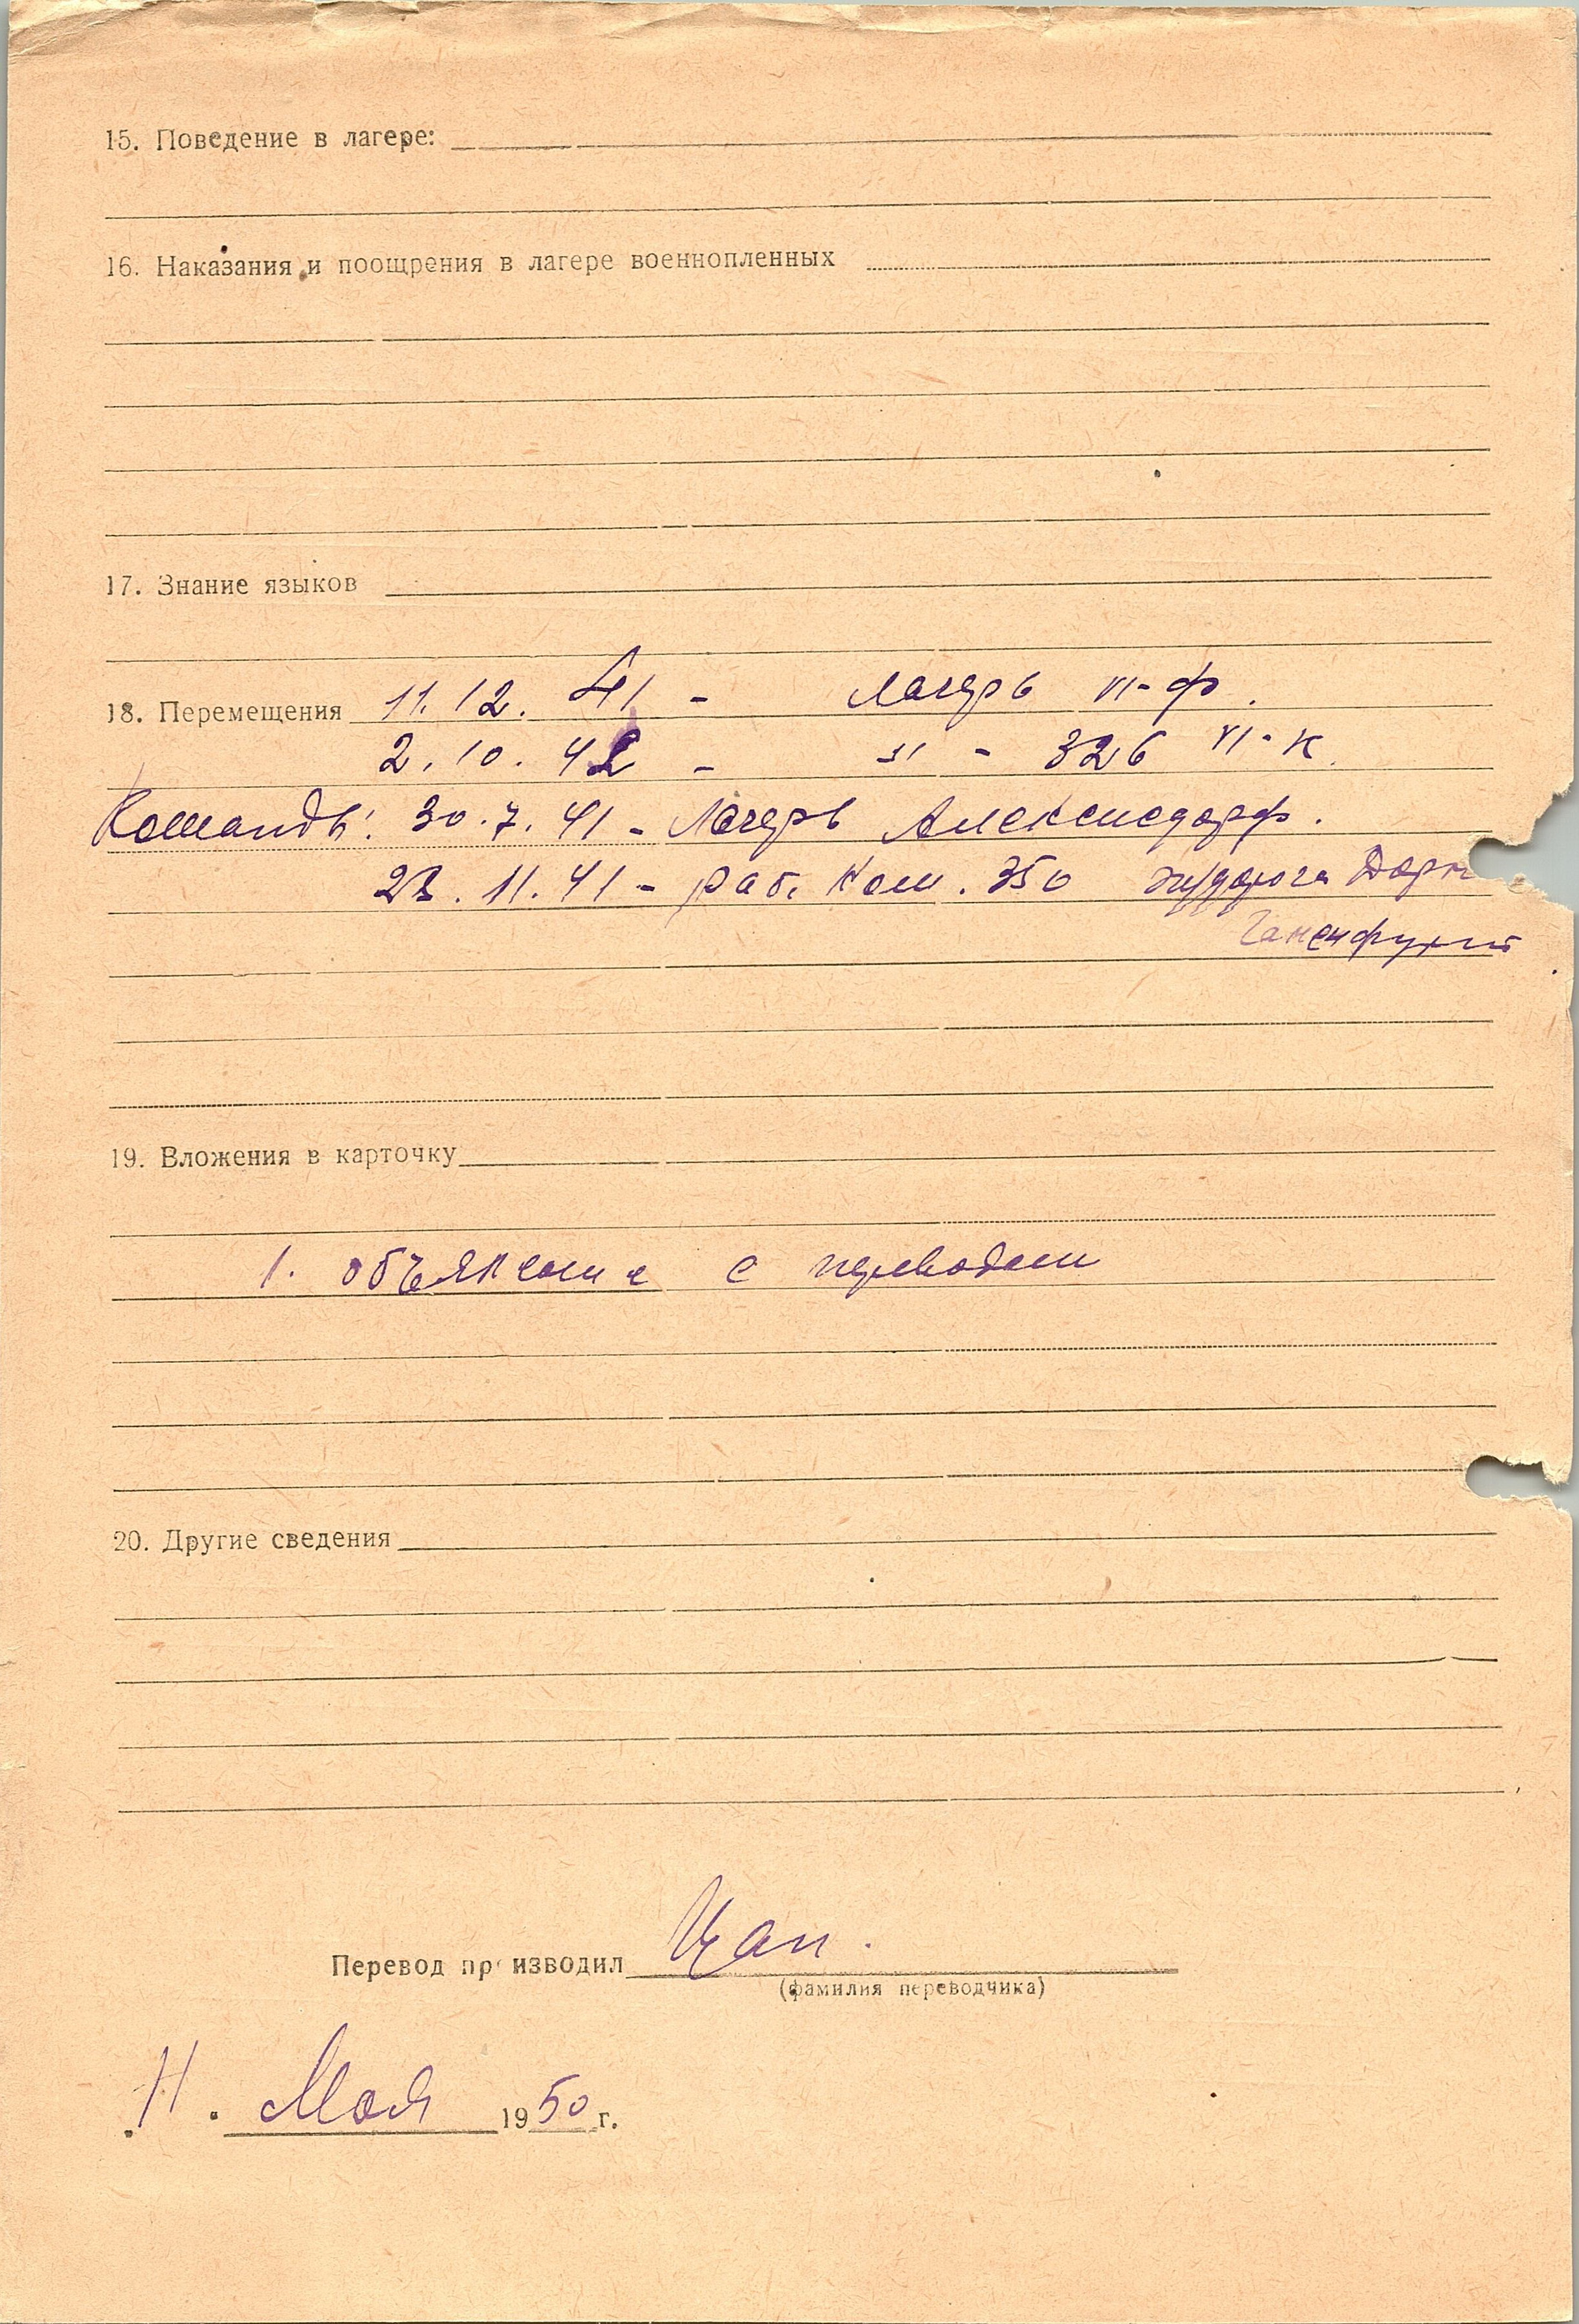 15. Поведение в лагере:
16. Наказания и поощрения в лагере военнопленных
17. Знание языков
18. Перемещения 11.12.41 - лагерь VI-ф.
2.10.42 - -"- 326 VI-К.
Команды: 30.7.41 - Лагерь Алексисдорф.
23.11.41 - раб. Ком. 350 ж/дорога
19. Вложения в карточку
1. объяснение с переводом
20. Другие сведения
Перевод производил Цап.
(фамилия переводчика)
11. Мая 1950 г.